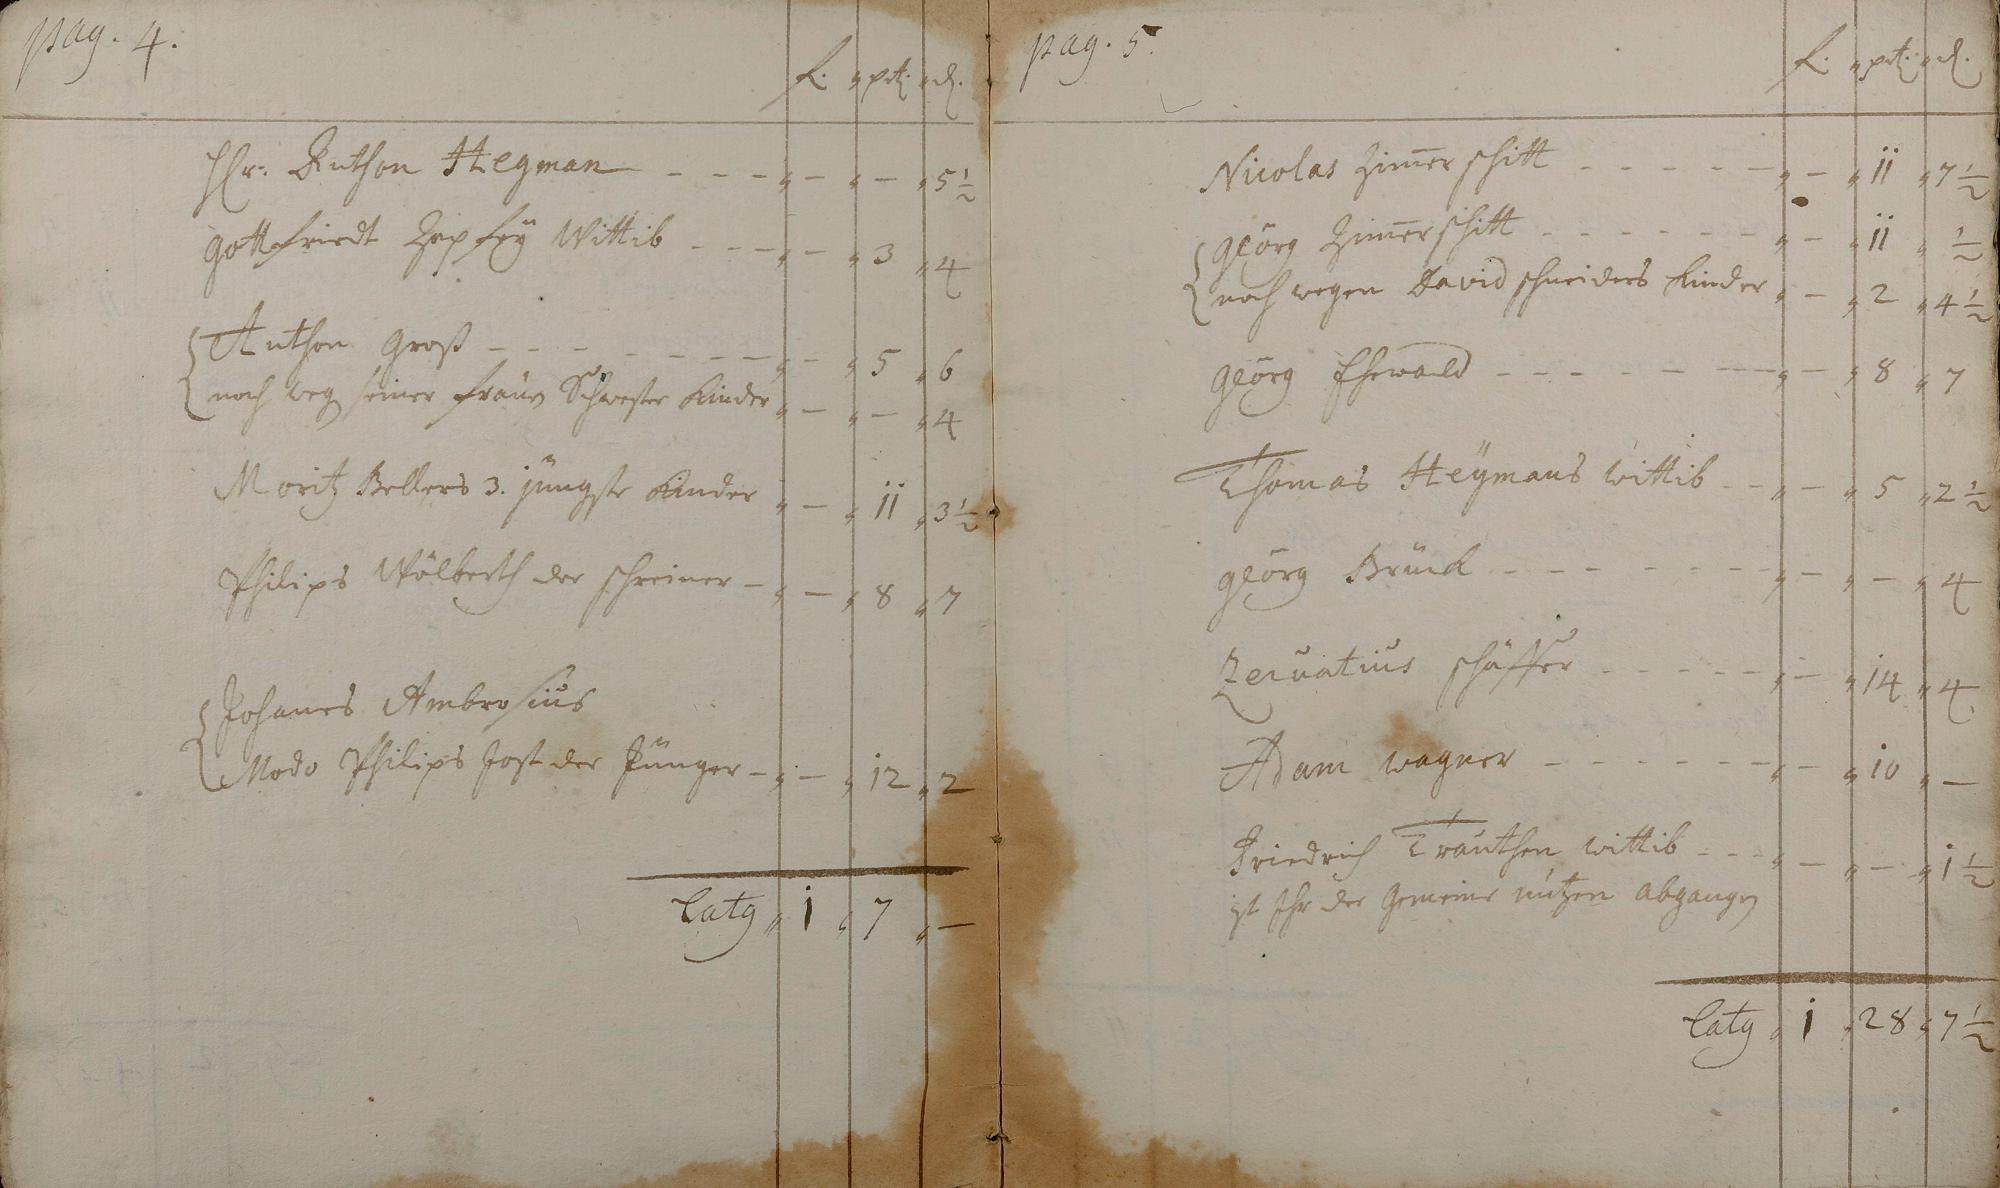 pag. 4.
f. ptz. d.
Hr. Anthon Hegman - - - - „ - „ - „ 5 1/2
Gottfriedt Zepfeÿ Wittib - - - - „ - „ 3 „ 4
Anthon Groß - - - - - - - „ - „ 5 „ 6
noch weg seiner frauen Schwester Kinder „ - „ - „ 4
Moritz Bellers 3. jüngste Kinder „ - „ 11 „ 3 1/2
Philips Wölberth der schreiner - „ - „ 8 „ 7
Johanes Ambrosius
Modo Philips Jost der Jünger - „ - „ 12 „ 2
Latg „ 1 „ 7 „ -
pag. 5.
f. „ ptz. „ d.
Nicolas Zim̄erschitt - - - - - „ - „ 11 „ 7 1/2
Geörg Zim̄erschitt - - - - - - „ - „ 11 „ 1/2
noch wegen David schneiders Kinder „ - „ 2 „ 4 1/2
Geörg Ehewald - - - - - - - „ - „ 8 „ 7
Thomas Heÿmans wittib - - „ - „ 5 „ 2 1/2
Geörg Brück - - - - - - - „ - „ - „ 4
Zeruatius schäffer - - - - - „ - „ 14 „ 4
Adam wagner - - - - - - „ - „ 10 „ -
Friedrich Trauthen wittib - - - „ - „ - „ 1 1/2
ist Ihr der Gemeine nützen abgangen
Latg „ 1 „ 28 „ 7 1/2